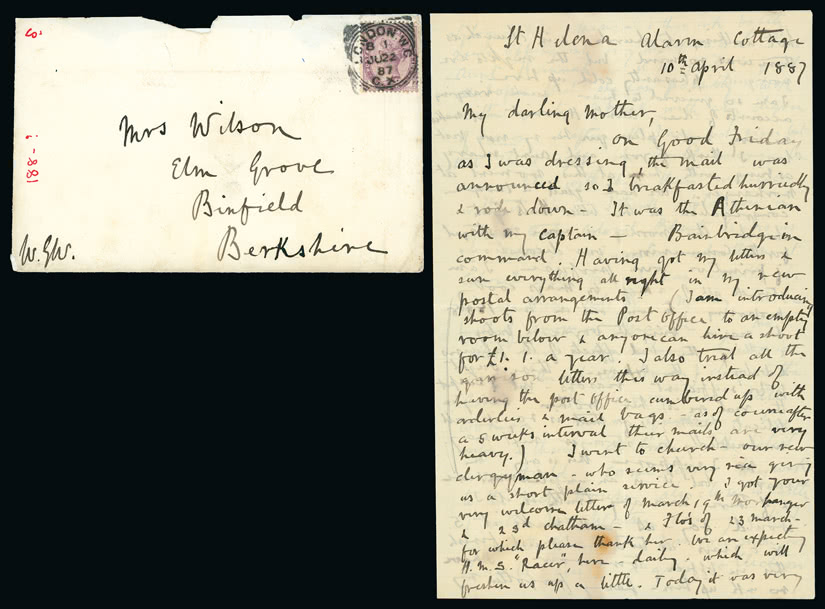 LONDON. W.C
8 1
JU 22
87
C.X.
Mrs Wilson
Elm Grove
Binfield
Berkshire
W.G.W.
188-
St Helena Alarm Cottage
10th April 1887
My darling Mother,
on Good Friday
as I was dressing, the mail was
announced so I breakfasted hurriedly
& rode down - It was the Athenian
with my captain - Bainbridge in
command. Having got my letters &
seen everything all right in my new
postal arrangements (I am introducing
shoots from the Post Office to an empty
room below & anyone can hire a shoot
for £1. 1. a year. I also treat all the
letters this way instead of
having the post office cumbered up with
orderlies & mail bags - as of course after
a 5 weeks interval their mails are very
heavy.) I went to church - our new
clergyman - who seems very nice giving
us a short plain service. I got your
very welcome letters of March 19th
& 23d Chatham - & Flo's of 23 March -
for which please thank her. We are expecting
H.M.S. "Racer", here - daily - which will
freshen us up a little. Today it was very